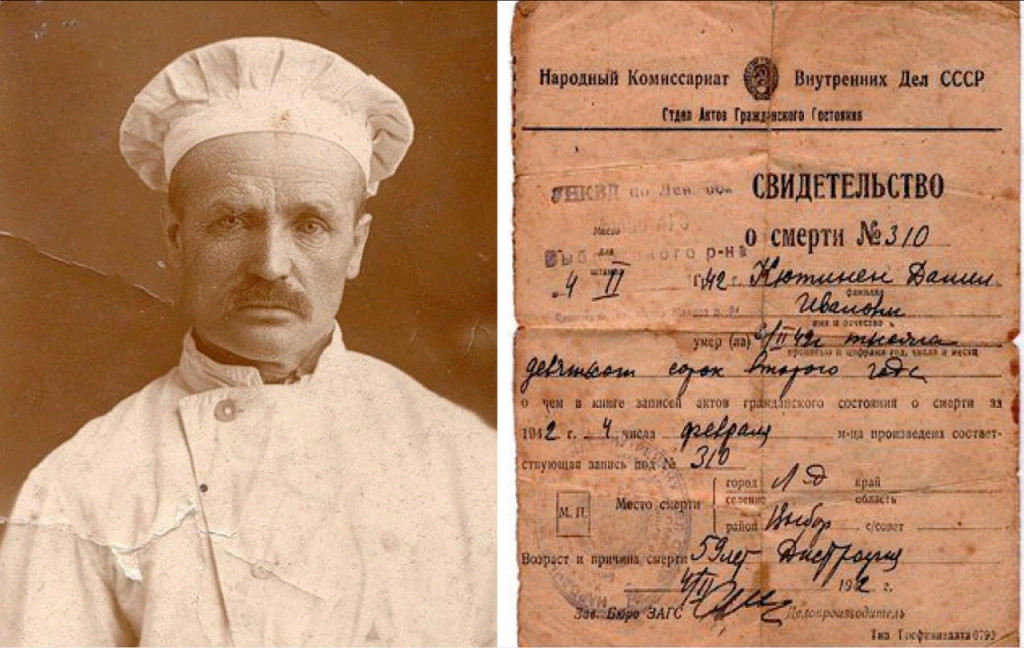 Народный Комиссариат Внутренних Дел СССР
Отдел Актов Гражданского Состояния
УНКВД по Лен. обл
СВИДЕТЕЛЬСТВО
Место
для
штампа
о смерти № 310
р-на
4 II 1942 г. Кютинен Данил
фамилия
Иванович
имя и отчество
умер (ла) 2/II 42г тысяча
прописью и цифрами год, число и месяц
девятьсот сорок второго года
о чем в книге записей актов гражданского состояния о смерти за
1942 г. 4 числа февраля м-ца произведена соответ-
ствующая запись под № 310
Место смерти
город Л-д край
селение область
район Выбор с/совет
М. П.
Возраст и причина смерти 59 лет Дистрофия
4/II 1942 г.
Зав. Бюро ЗАГС Делопроизводитель
Тип Госфиниздата 6793